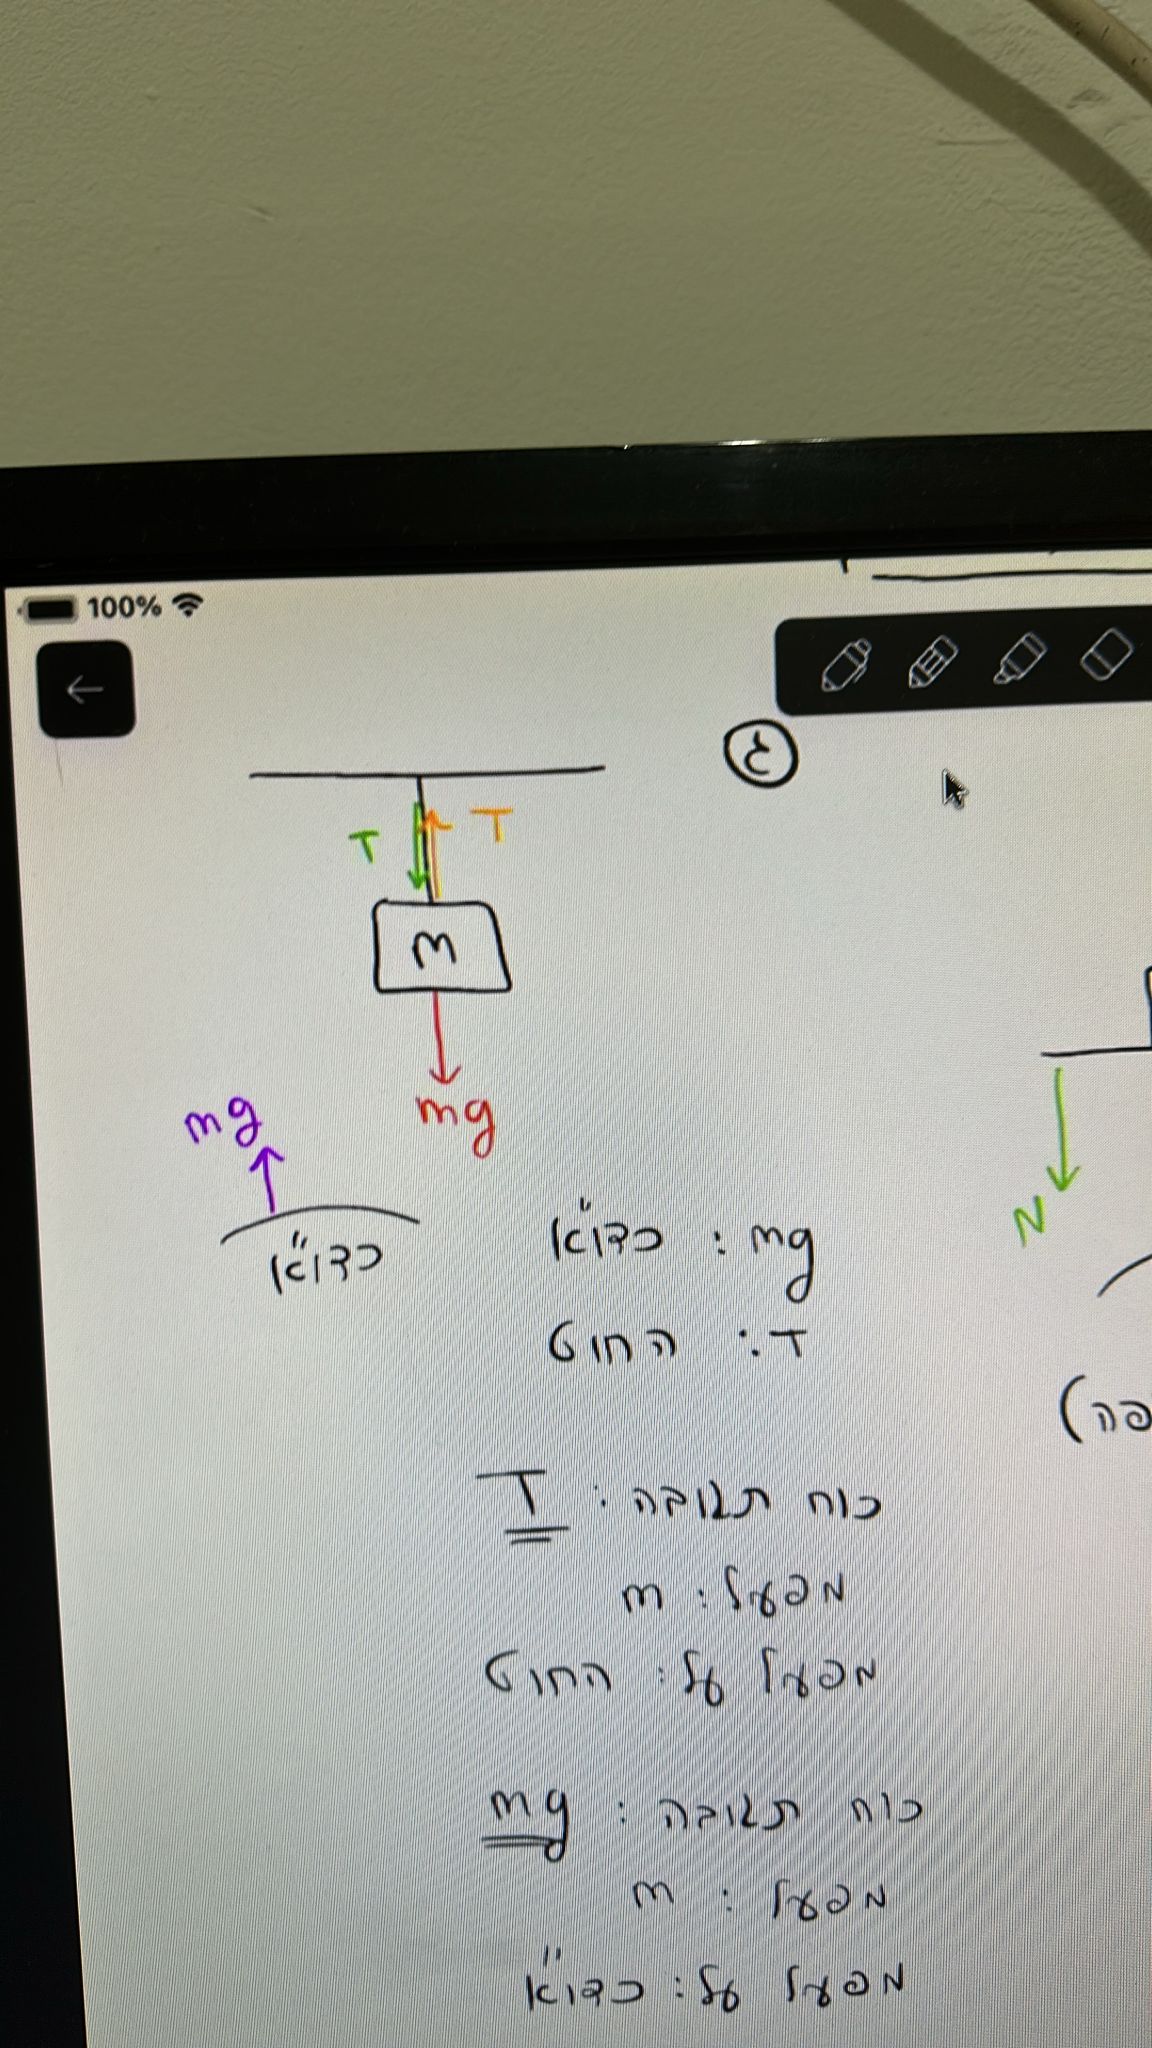 100%
③
T T
m
mg
mg
כדוה"א
mg : כדוה"א
T : החוט
N
פה)
כוח תגובה : T
מפעיל : m
מפעל על : החוט
כוח תגובה : mg
מפעל : m
מפעל על : כדוה"א